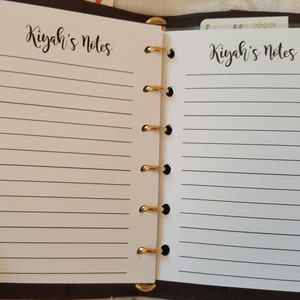 Kiyah's Notes
Kiyah's Notes